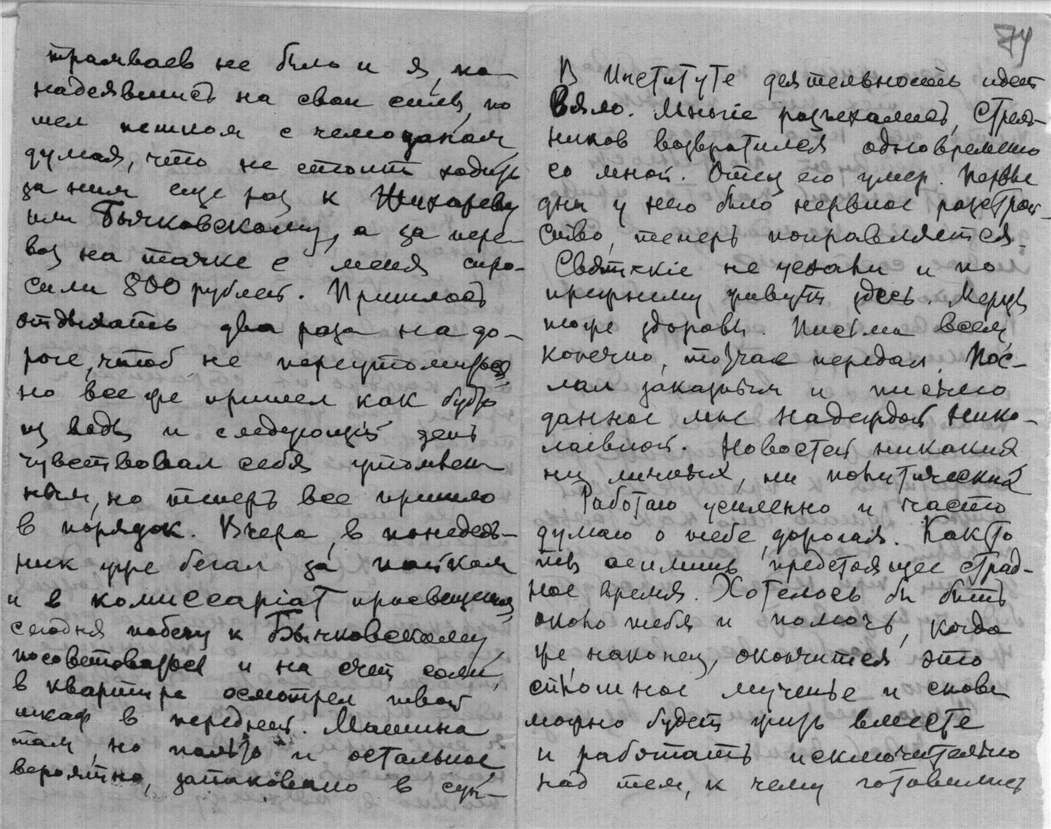 трамваев не было и я, по-
надеявшись на свои силы, по
шел пешком с чемоданом
думая, что не стоит ходить
за ним еще раз к Жихареву
или Бычковскому, а за пере-
воз на тачке с меня спро-
сили 800 рублей. Пришлось
отдыхать два раза на до-
роге, чтоб не переутомиться
но все же пришел как будто
из воды и следующий день
чувствовал себя утомлен
ным, но теперь все пришло
в порядок. Вчера, в понедель-
ник уже бегал за пайком
и в комиссариат просвещения,
сегодня побегу к Бычковскому
посоветоваться и на счет соли,
в квартире осмотрел твой
шкаф в передней. Машина
там, но пальто и остальное
вероятно, запаковано в сун-
74
В Институте деятельность идет
вяло. Многие разъехались,
ников возвратился одновременно
со мной. Отец его умер. Первые
дни у него было нервное расстрой-
ство, теперь поправляется.
Святскіе не уехали и по
прежнему живут здесь.
тоже здоровы Письма всем,
конечно, тотчас передал. Пос-
лал заказным и письмо
данное мне Надеждой Нико-
лаевной. Новостей никаких
ни личных, ни политических
Работаю усиленно и часто
думаю о тебе, дорогая. Как то
ты осилишь предстоящее страд-
ное время. Хотелось бы быть
около тебя и помочь, когда
же наконец, окончится это
страшное мученье и снова
можно будет жить вместе
и работать исключительно
над тем, к чему готовились